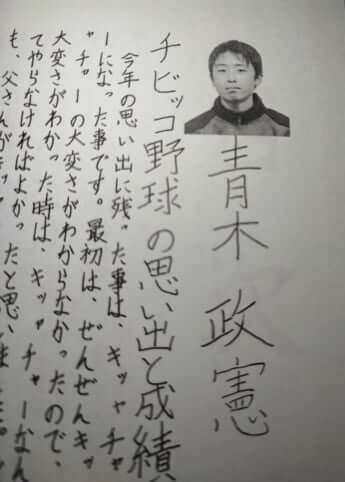 青木 政憲
チビッコ野球の思い出と成績
今年の思い出に残った事は、キャッチャ
ーになった事です。最初は、ぜんぜんキッ
チャーの大変さがわからなかったので、
大変さがわかった時は、キッャチャーなん
てやらなければよかったと思いました。
も、父さんが